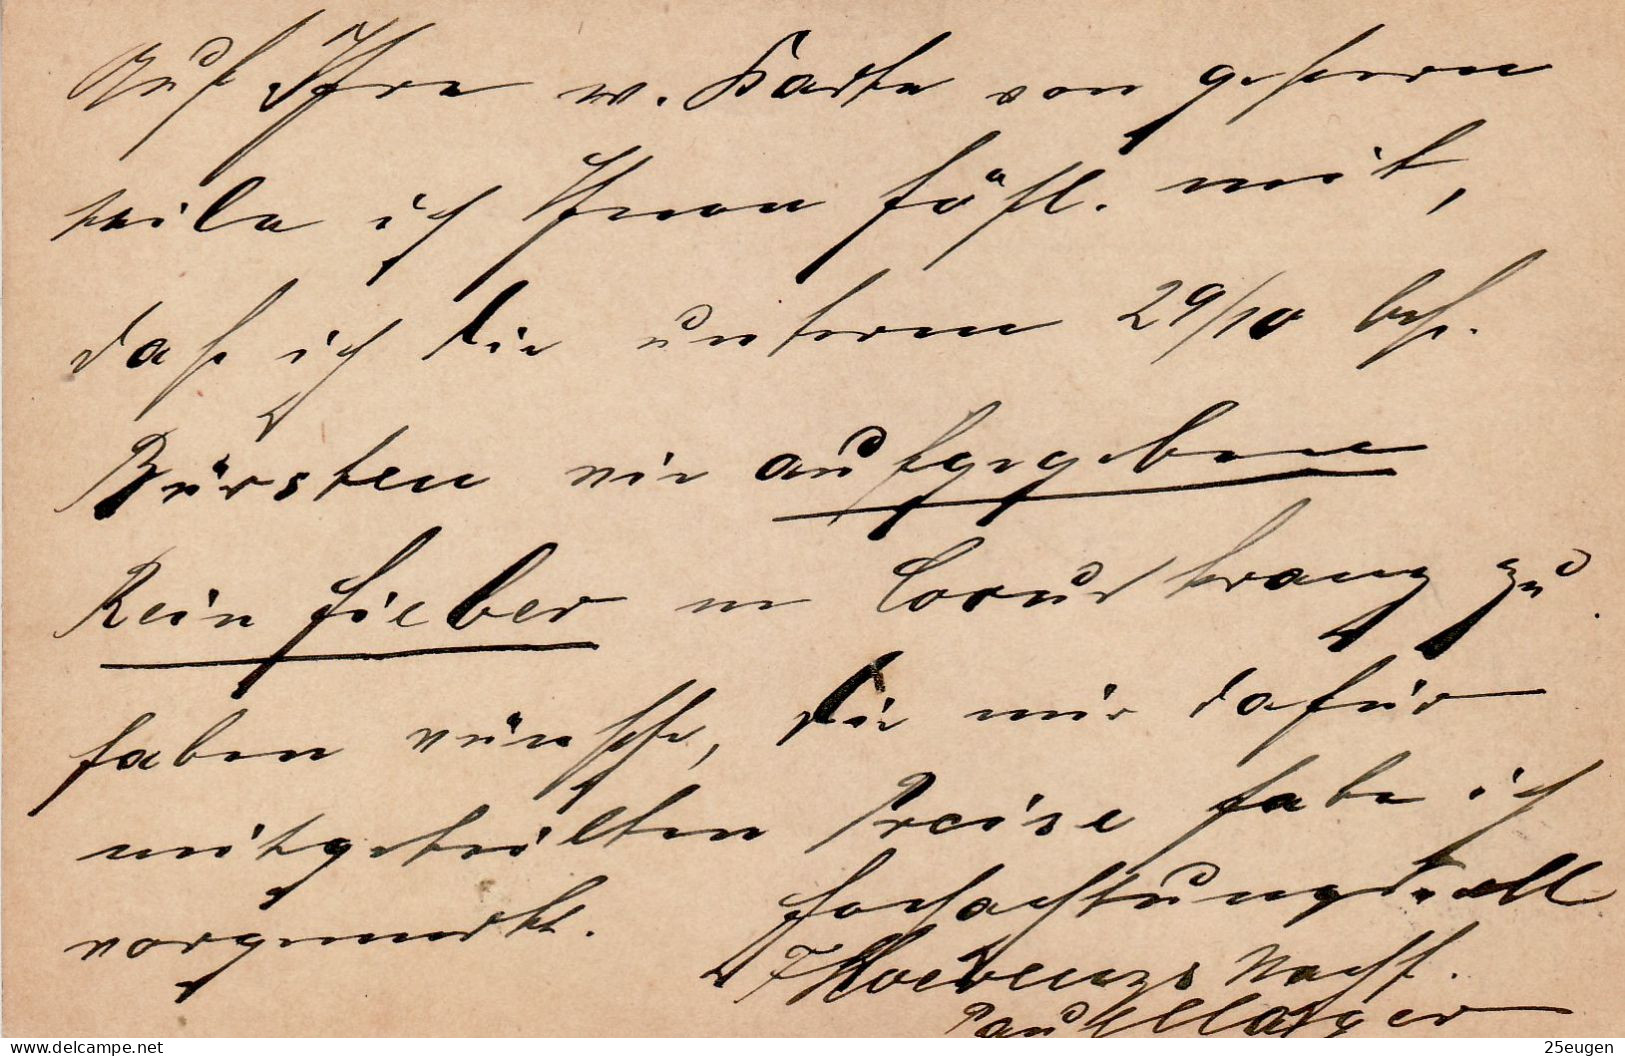 Auf Ihre w. Karte von gestern
teile ich Ihnen höfl. mit,
daß ich die unterm 29/10 beſt.
Bürsten wie aufgegeben
Rein
haben wünsche, die mir dafür
mitgeteilten Preise habe ich
vorgemerkt. Hochachtungsvoll
Nachf.
Paul
25eugen